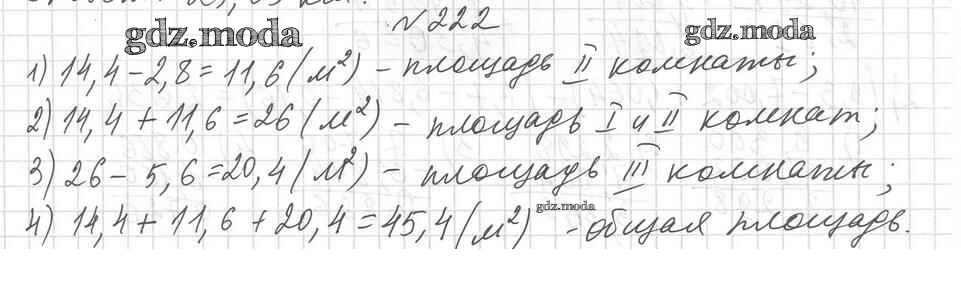 № 222
gdz.moda gdz.moda
1) 14,4 - 2,8 = 11,6 (м²) - площадь II комнаты;
2) 14,4 + 11,6 = 26 (м²) - площадь I и II комнат;
3) 26 - 5,6 = 20,4 (м²) - площадь III комнаты;
gdz.moda
4) 14,4 + 11,6 + 20,4 = 45,4 (м²) - общая площадь.